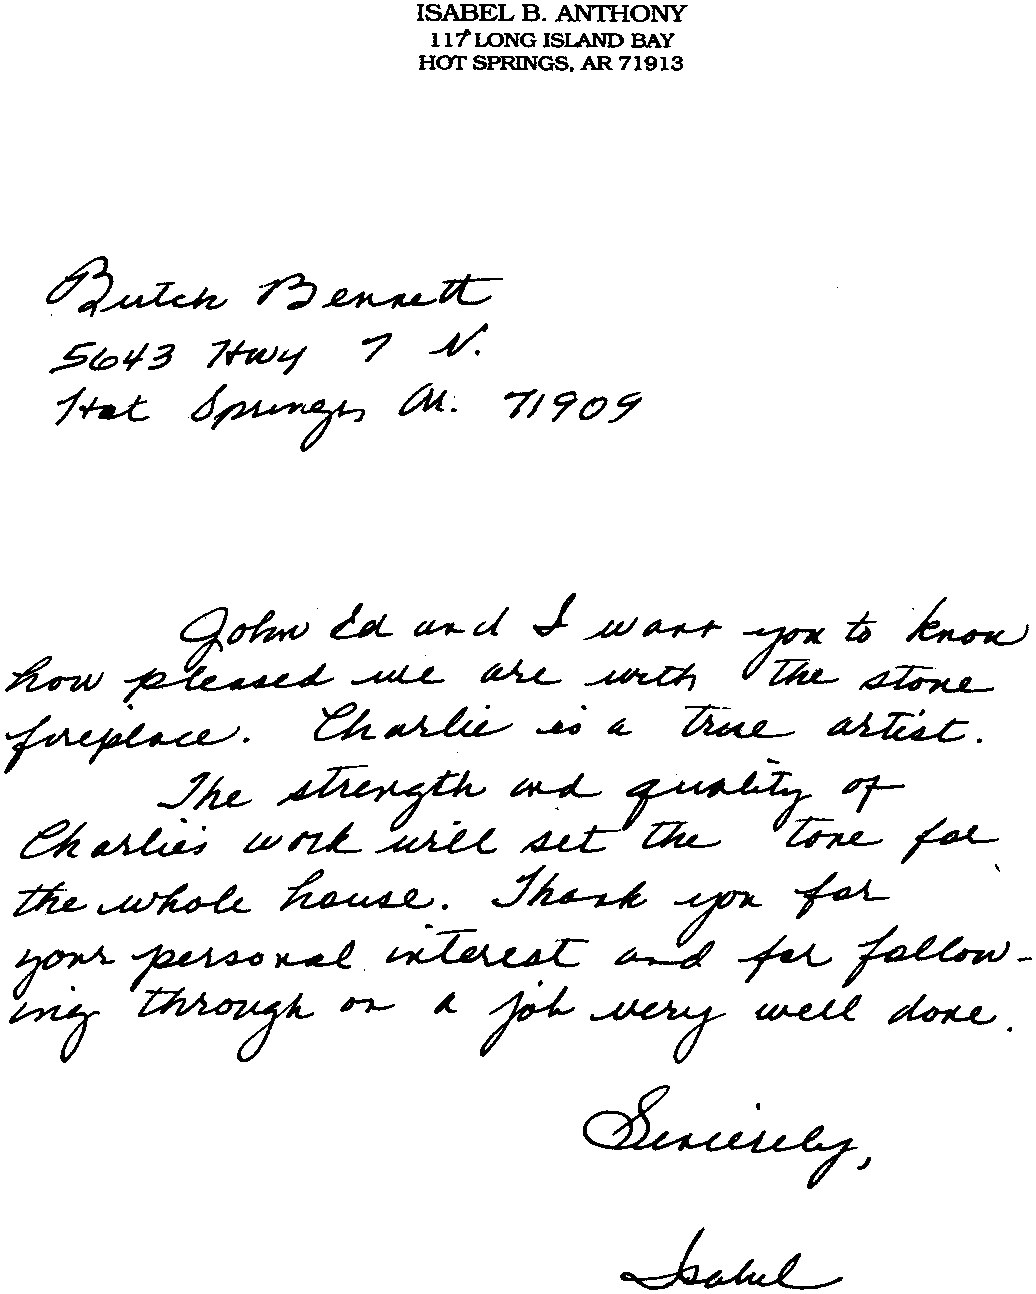 ISABEL B. ANTHONY
117 LONG ISLAND BAY
HOT SPRINGS, AR 71913
Butch Bennett
5643 Hwy 7 N.
Hot Springs, Ar. 71909
John Ed and I want you to know
how pleased we are with the stone
fireplace. Charlie is a true artist.
The strength and quality of
Charlie's work will set the tone for
the whole house. Thank you for
your personal interest and for follow-
ing through on a job very well done.
Sincerely,
Isabel